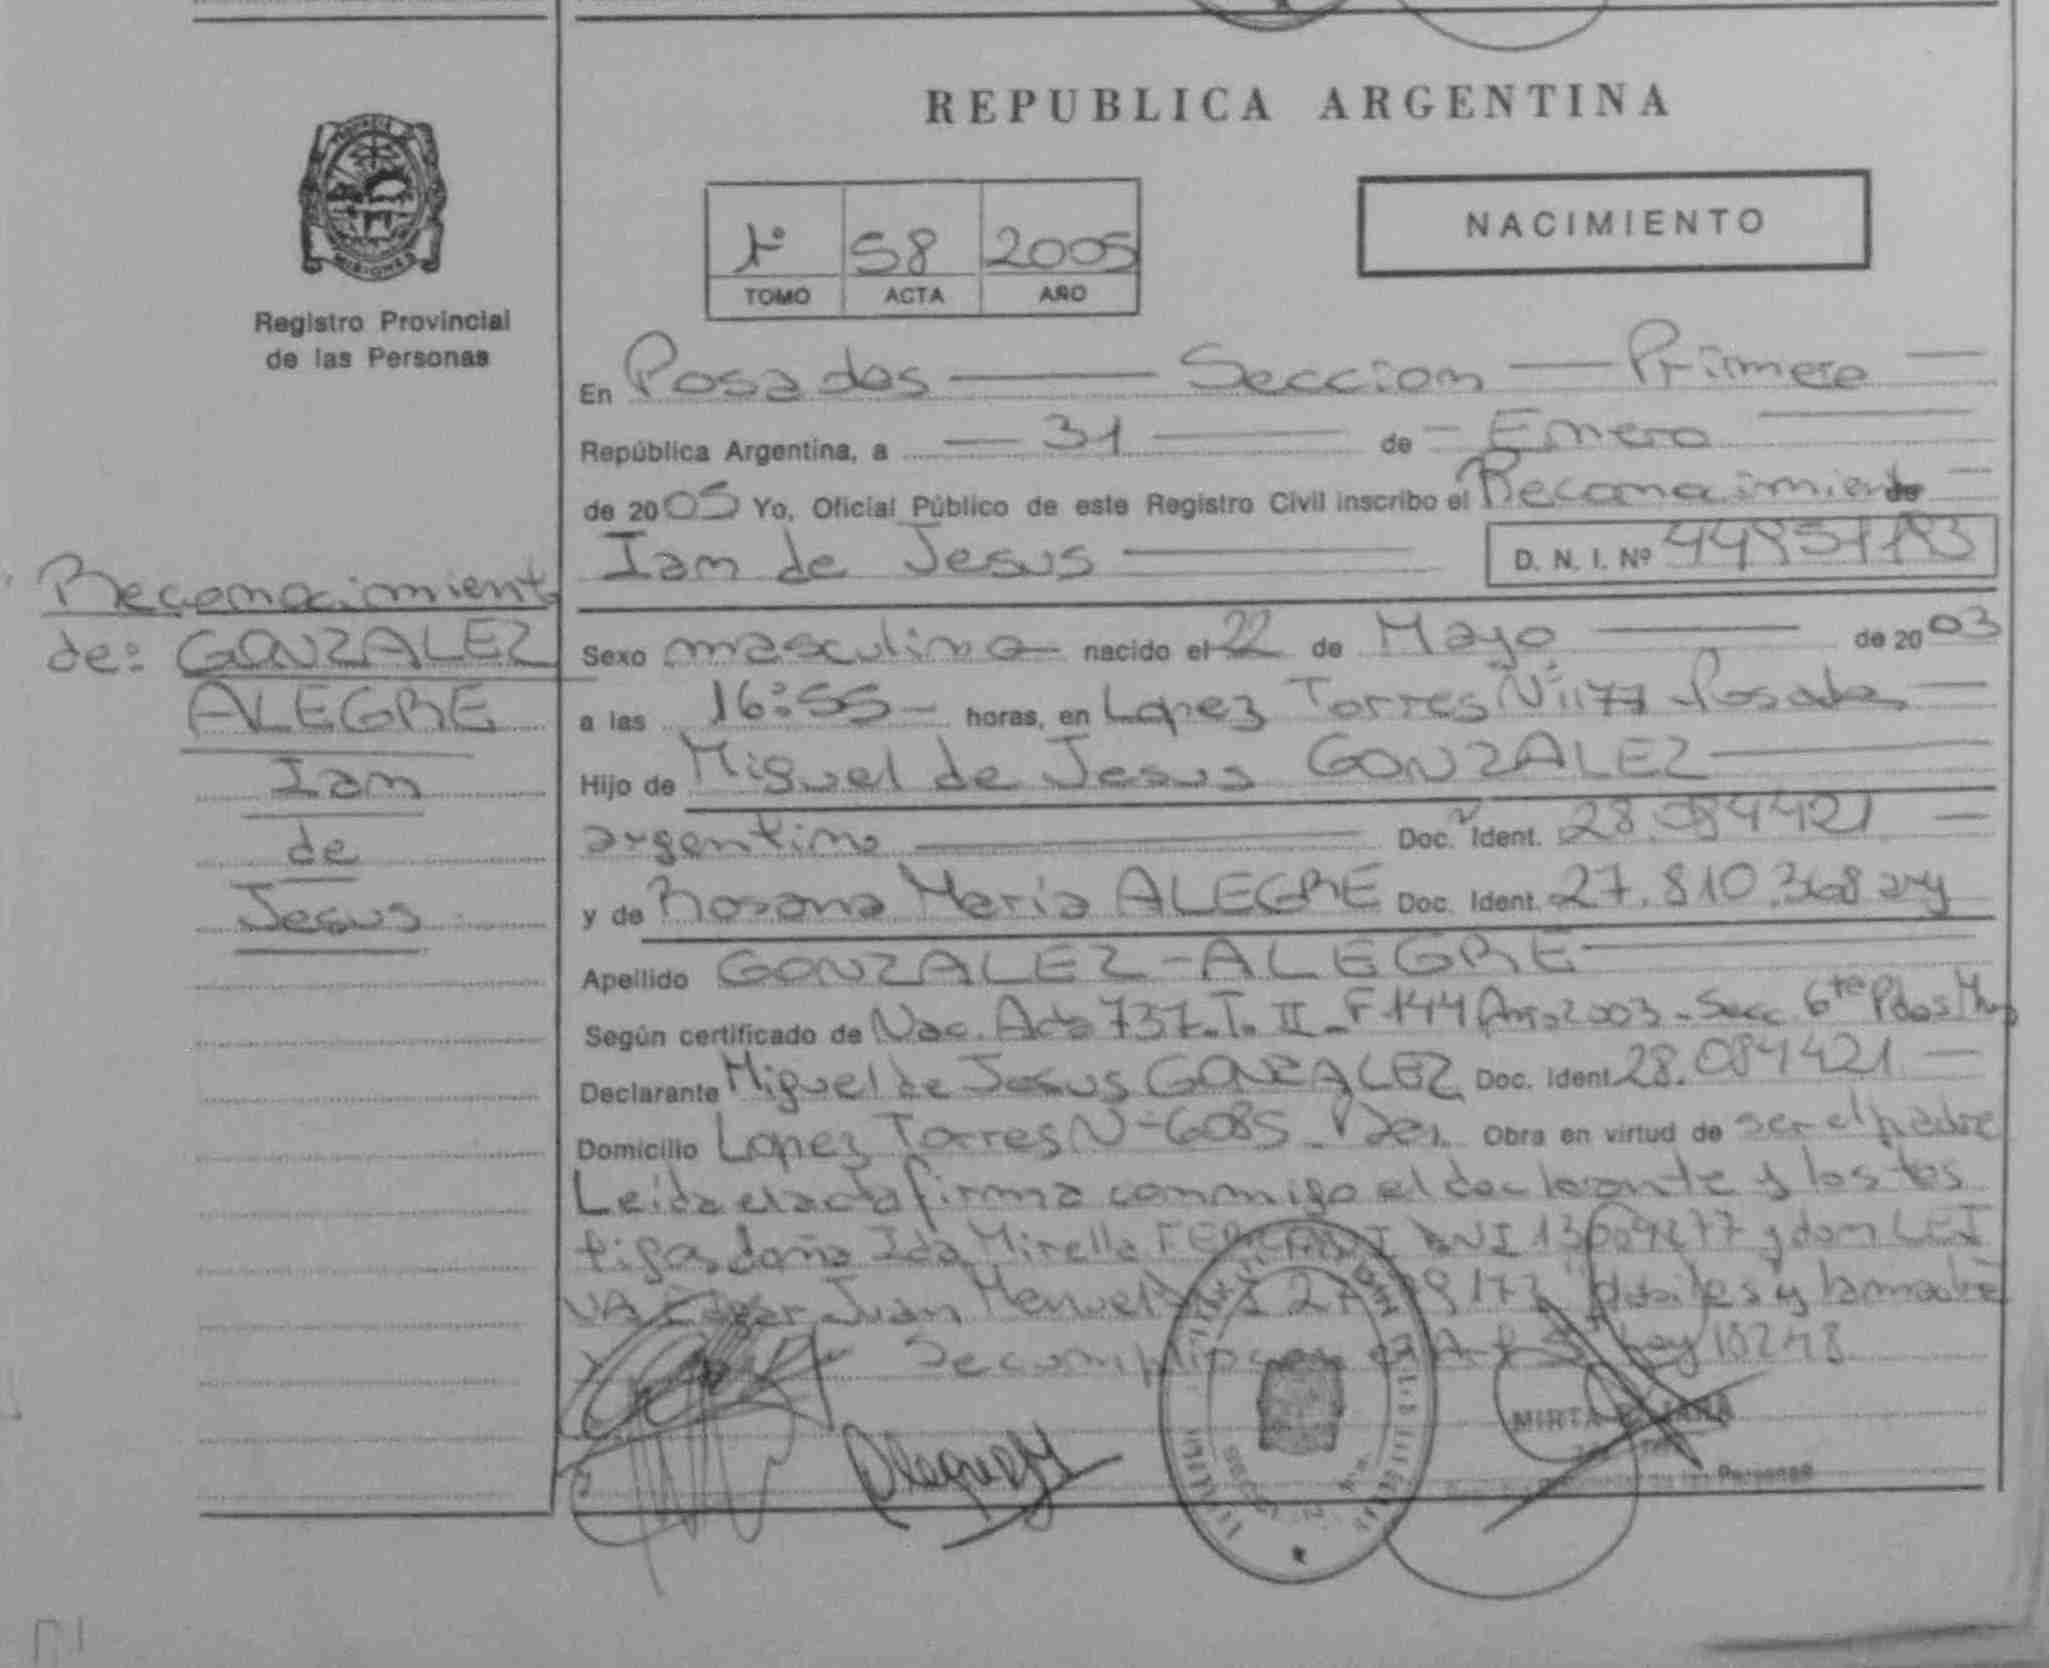 REPUBLICA ARGENTINA
NACIMIENTO
1º 58 2005
TOMO ACTA AÑO
PROVINCIA DE
MISIONES
Registro Provincial
de las Personas
Reconocimient
de: GONZALEZ
ALEGRE
Ian
de
Jesus
En Posadas — Seccion — Primera —
República Argentina, a — 31 — de - Enero —
de 2005 Yo, Oficial Público de este Registro Civil inscribo el Reconocimiento —
Ian de Jesus — D. N. I. Nº
Sexo masculino nacido el 22 de Mayo — de 2003
a las 16:55 - horas, en Lopez Torres Nº 1177 Posadas —
Hijo de Miguel de Jesus GONZALEZ —
argentino — Doc. Ident. 28.084421 —
y de Rosana Maria ALEGRE Doc. Ident. 27.810.368 arg
Apellido GONZALEZ - ALEGRE —
Según certificado de Nac. Acta 737. T. II - F 144 Año 2003 - Secc. 6ta Pdas Mnes
Declarante Miguel de Jesus GONZALEZ Doc. Ident 28.084421 —
Domicilio Lopez Torres Nº 6085 - Pdas. Obra en virtud de ser el padre
Leida el acta firma conmigo el declarante y los tes
tigos doña Ida Mirella DNI y don LEI
VA Juan Manuel y la madre
Ley 18248
MIRTA
Personas